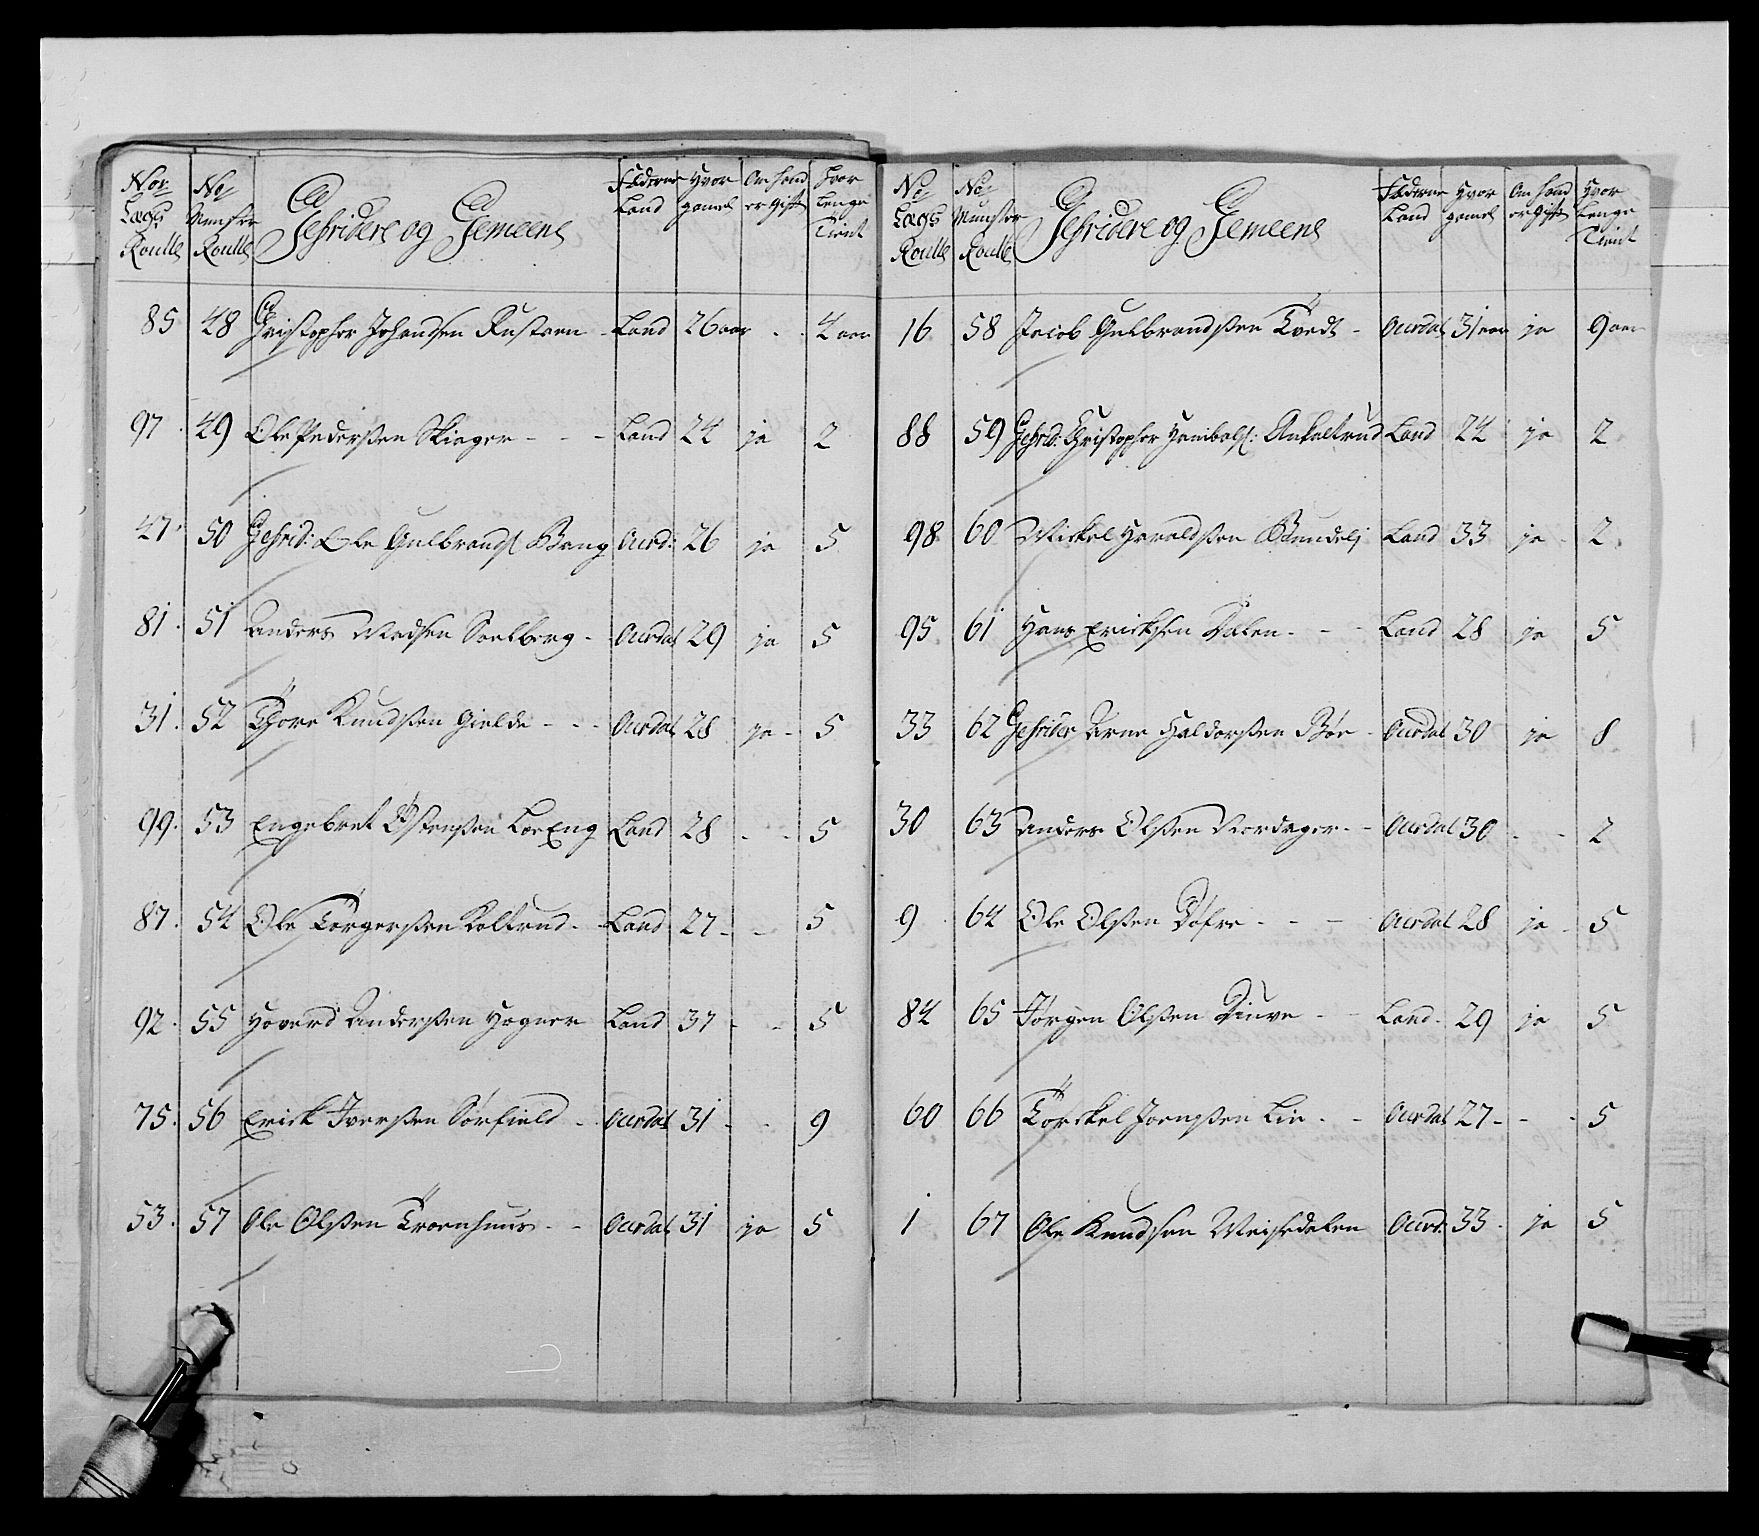 No: Lægs Roulle | No: Munster Roulle | Gefridere og Gemeene | Fæderne Land | Hvor gamel | Om hand er Gift | Hvor Lenge Tient
85 48 Christopher Johandsen Rustaen - Land 26 aar - - 4 aar
97 49 Ole Pedersen Skiager - - - Land 24 ja 2
47 50 Gefrid: Ole Gulbrands: Bang Aurd: 26 ja 5
81 51 Anders Madsen Soelberg - Aurdal 29 ja 5
31 52 Thore Knudsen Gielde - - - Aurdal 28 ja - 5
99 53 Engebret Østensen LoeEng Land 28 - - 5
87 54 Ole Törgersen Koltrud - Land 27 - - 5
92 55 Hoverd Andersen Hogner Land 37 - - 5
75 56 Erick Iversen Sørfield - Aurdal 31 - - 9
53 57 Ole Olsen Troenhuus - - Aurdal 31 ja 5
No: Lægs Roulle | No: Munster Roulle | Gefridere og Gemeene | Fæderne Land | Hvor gamel | Om hand er Gift | Hvor Lenge Tient
16 58 Jacob Gulbrandsen Tvedt - Aurdal 31 aar ja 9 aar
88 59 Gefrid: Christopher Hanibals: Ankeltrud Land 24 ja 2
98 60 Mickel Haraldsen Land 33 ja - 2
95 61 Hans Ericksen Dalen - - - Land 28 ja 5
33 62 Gefrider Arne Haldorsen Bøe - Aurdal 30 ja 8
30 63 Anders Olsen Nordager - - Aurdal 30 - - 2
9 64 Ole Olsen Døfre - - - Aurdal 28 ja - 5
84 65 Jørgen Olsen - - Land 29 ja 5
60 66 Törckel Joensen Lie - - Aurdal 27 - - - 5
1 67 Ole Knudsen Meisedalen Aurd: 33 ja 5